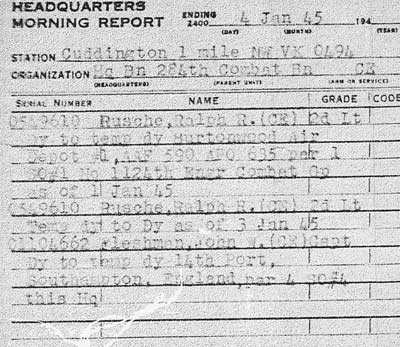 HEADQUARTERS
MORNING REPORT ENDING 2400 4 Jan 45 194
(DAY) (MONTH) (YEAR)
STATION Cuddington 1 mile NW VK 0494
ORGANIZATION Hq Bn 284th Combat Bn CE
(HEADQUARTERS) (PARENT UNIT) (ARM OR SERVICE)
SERIAL NUMBER NAME GRADE CODE
Rusche, Ralph R. (CE) 2d Lt
Dy to temp dy Burtonwood Air
Depot #1, AAF 590 APO 635 per 1
SO#1 Hq 1124th Engr Combat Gp
as of 1 Jan 45
Rusche, Ralph R. (CE) 2d Lt
Temp dy to Dy as of 3 Jan 45
01104662 Fleshman, John W. (CE) Capt
Dy to temp dy 14th Port,
Southampton, England, per 4 SO#4
this Hq